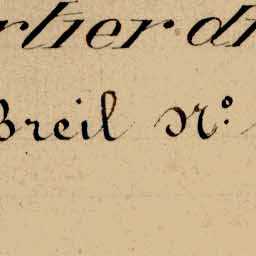 rtier di
Breil N°.